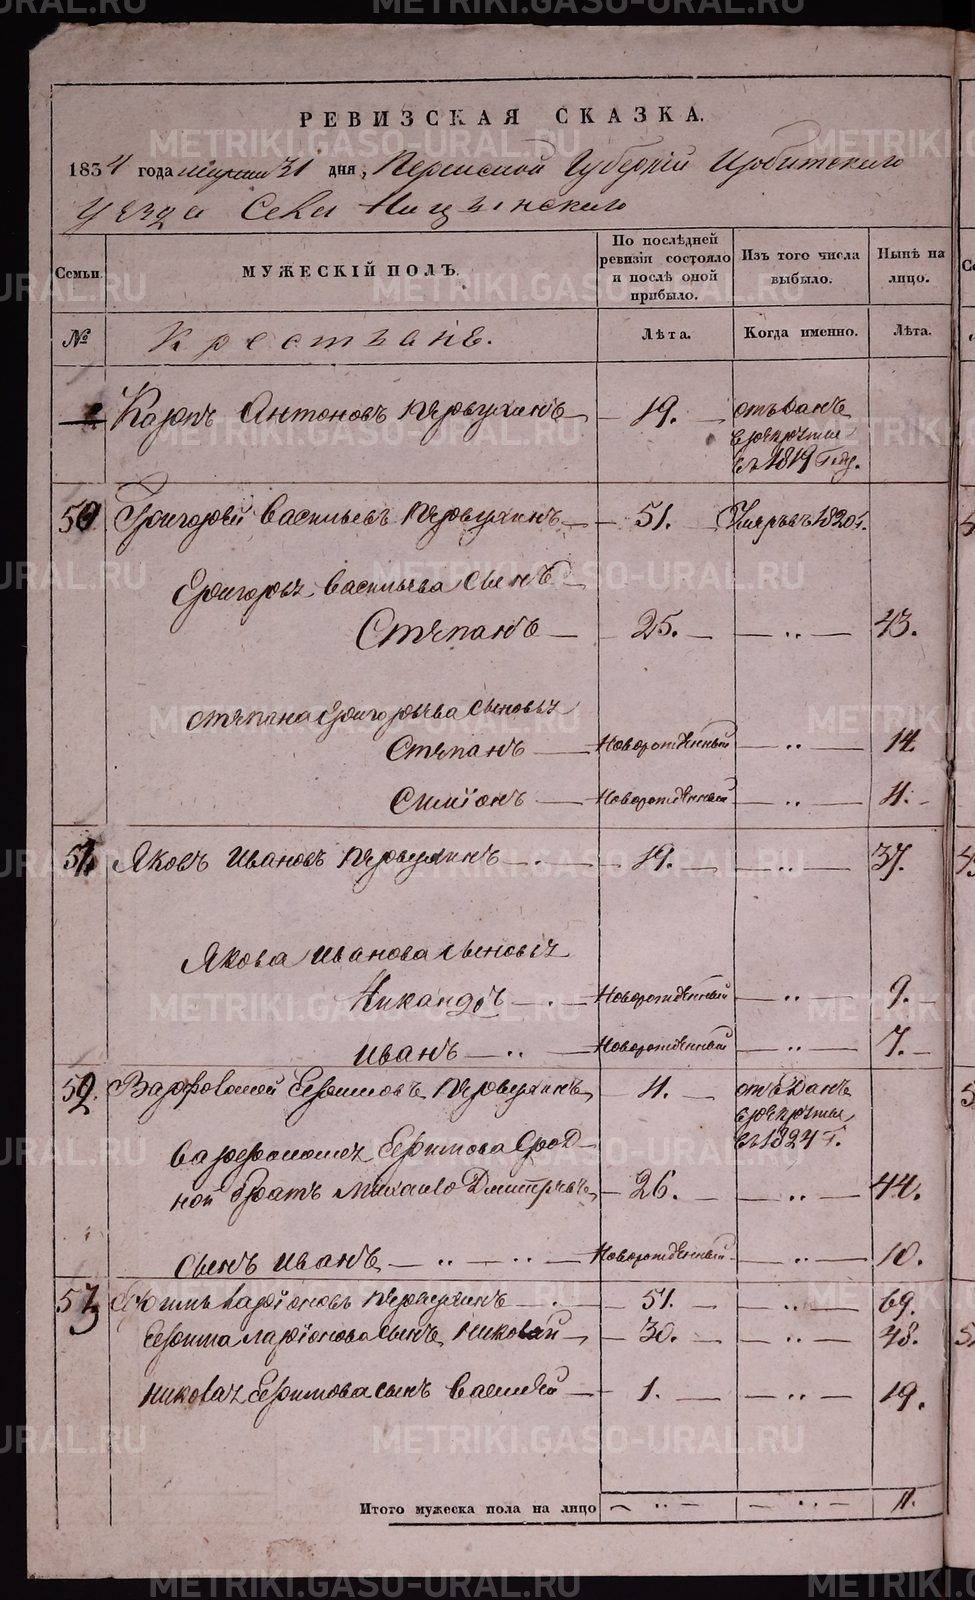 РЕВИЗСКАЯ СКАЗКА.
1834 года марта 31 дня, Пермской Губернїи Ирбитского
уезда Села Ницынского
Семьи.
МУЖЕСКІЙ ПОЛЪ.
По послѣдней ревизіи состояло и послѣ оной прибыло.
Изъ того числа выбыло.
Нынѣ на лицо.
№
Крестьяне.
Лѣта.
Когда именно.
Лѣта.
Карпъ Антоновъ Первухинъ — 19. — отъданъ
врекруты
въ 1819 Году.
50 Григорей Васильевъ Первухинъ — 51. Умръвъ 1820 г.
Григорья Васильева сынъ
Степанъ — 25. — „ — 43.
Степана Григорьева сыновья
Степанъ — Новорожденный — „ — 14
Симіонъ — Новорожденный — „ — 4.
51. Яковъ Ивановъ Первухинъ — 19. — „ — 37.
Якова Иванова сыновья
Никандръ — Новорожденный — „ — 9.
Иванъ — „ — Новорожденный — „ — 7.
52. Варфоломей Ефимовъ Первухинъ — 4. отъданъ
врекруты
въ 1824 г.
Варфоломея Ефимова Срод
ной братъ Михаило Дмитрѣевъ — 26. — „ — 44.
Сынъ Иванъ — „ — „ — Новорожденный — „ — 10.
53 Ефимъ Ларіоновъ Первухинъ — 51. — „ — 69.
Ефима Ларіонова сынъ Николай — 30. — „ — 48.
Николая Ефимова сынъ Василей — 1. — „ — 19.
Итого мужеска пола на лицо — „ — — „ — 11.
METRIKI.GASO-URAL.RU